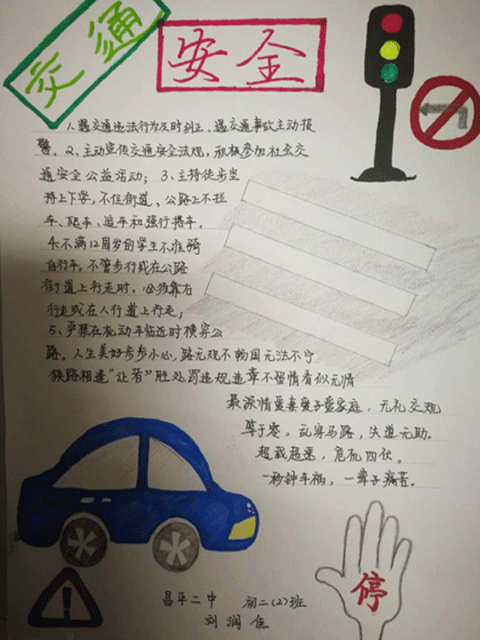 交通
安全
1、遇交通违法行为及时纠正、遇交通事故主动报
警。2、主动宣传交通安全法规，积极参加社会交
通安全公益活动；3、主持徒步坐
持上下学，不在街道、公路上不拦
车、爬车、追车和强行搭车。
4:不满12周岁的学生不准骑
自行车。不管步行或在公路
街道上行走时，必须靠右
行走或在人行道上行走；
5、严禁在机动车临近时横穿公
路。人生美好步步小心，路无规不畅国无法不宁
狭路相逢"让者"胜处罚违规违章不留情看似无情
最深情爱妻爱子爱家庭，无礼交规
等于零。乱穿马路，失道无助。
超载超速，危机四伏。
一秒钟车祸，一辈子痛苦。
停
昌平二中 初二(2)班
刘润佳